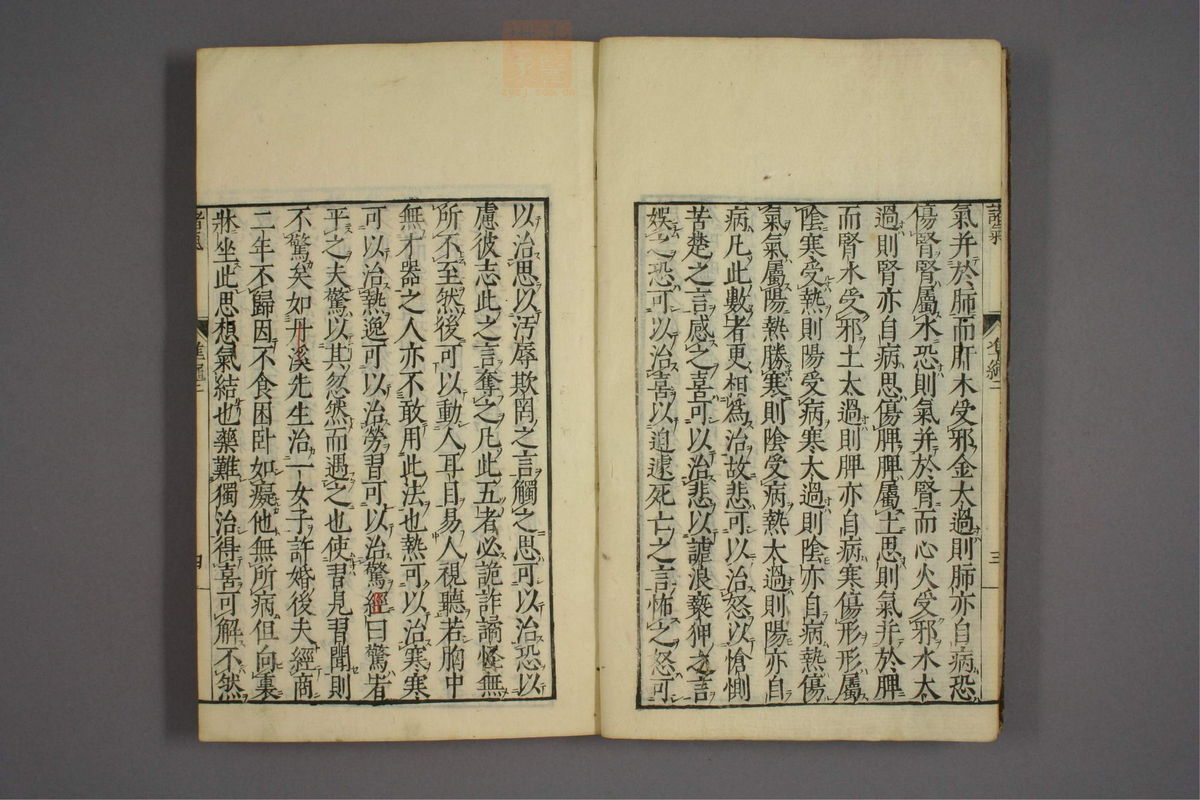 氣并於肺而肝木受邪金太過則肺亦自病恐
傷腎腎屬水恐則氣并於腎而心火受邪水太
過則腎亦自病思傷脾脾屬土思則氣并於脾
而腎水受邪土太過則脾亦自病寒傷形形屬
陰寒受熱則陽受病寒太過則陰亦自病熱傷
氣氣屬陽熱勝寒則陰受病熱太過則陽亦自
病凡此數者更相為治故悲可以治怒以愴惻
苦楚之言感之喜可以治悲以謔浪褻狎之言
娛之恐可以治喜以迫遽死亡之言怖之怒可
三
以治思以汚辱欺罔之言觸之思可以治恐以
慮彼志此之言奪之凡此五者必詭詐譎怪無
所不至然後可以動人耳目易人視聽若胸中
無才器之人亦不敢用此法也熱可以治寒寒
可以治熱逸可以治勞習可以治驚經曰驚者
平之夫驚以其忽然而遇之也使習見習聞則
不驚矣如丹溪先生治一女子許婚後夫經商
二年不歸因不食困臥如癡他無所病但向裏
牀坐此思想氣結也藥難獨治得喜可解不然
四